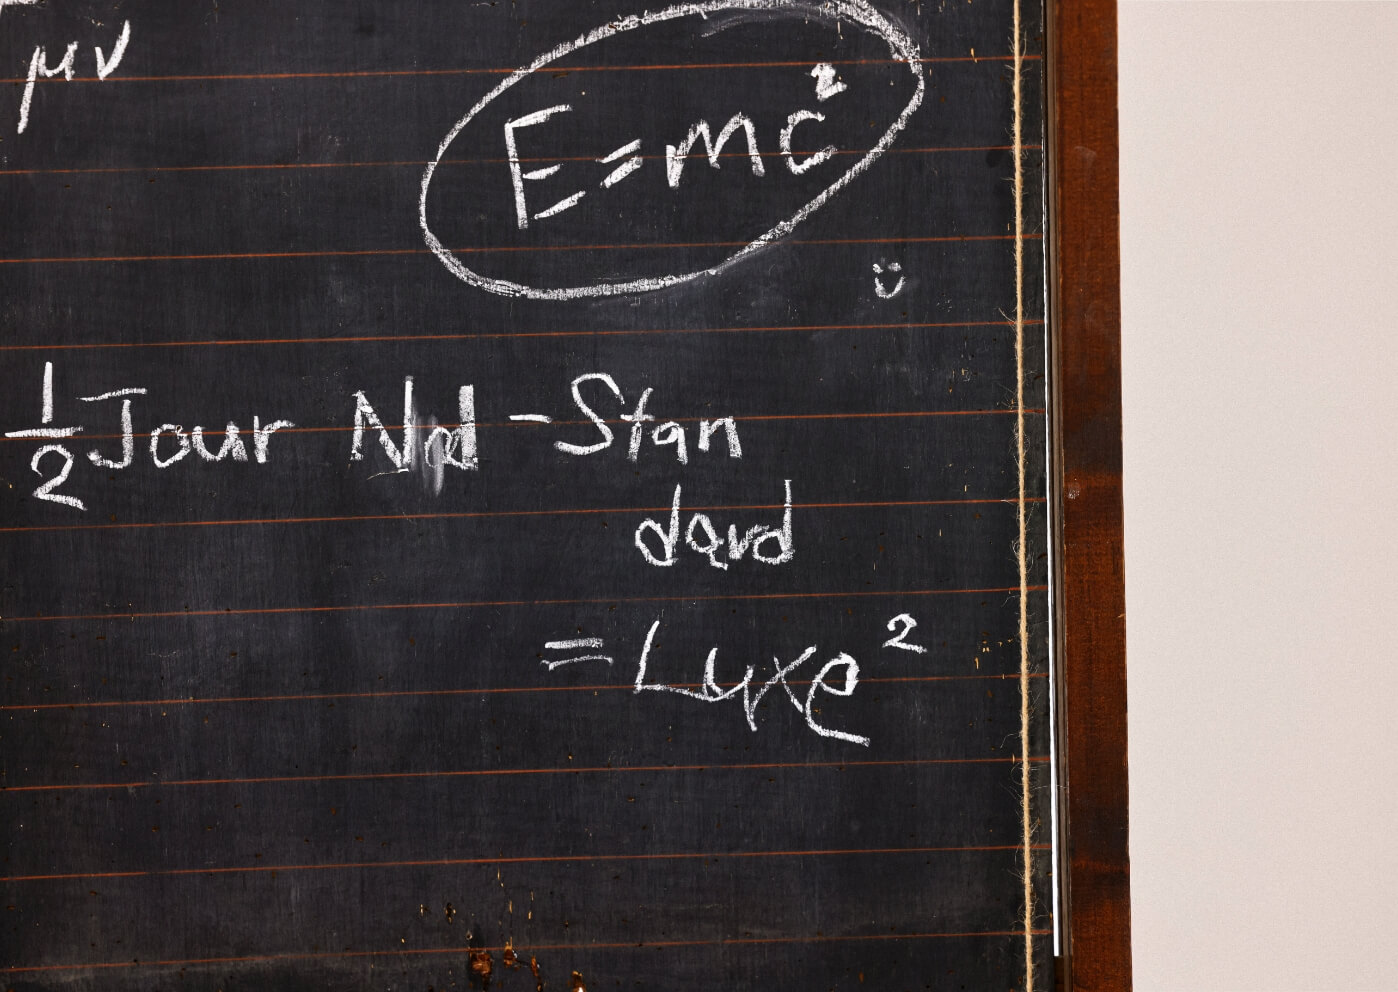 μν
E=mc²
½ Jour Nad -Stan
dard
=Luxe²